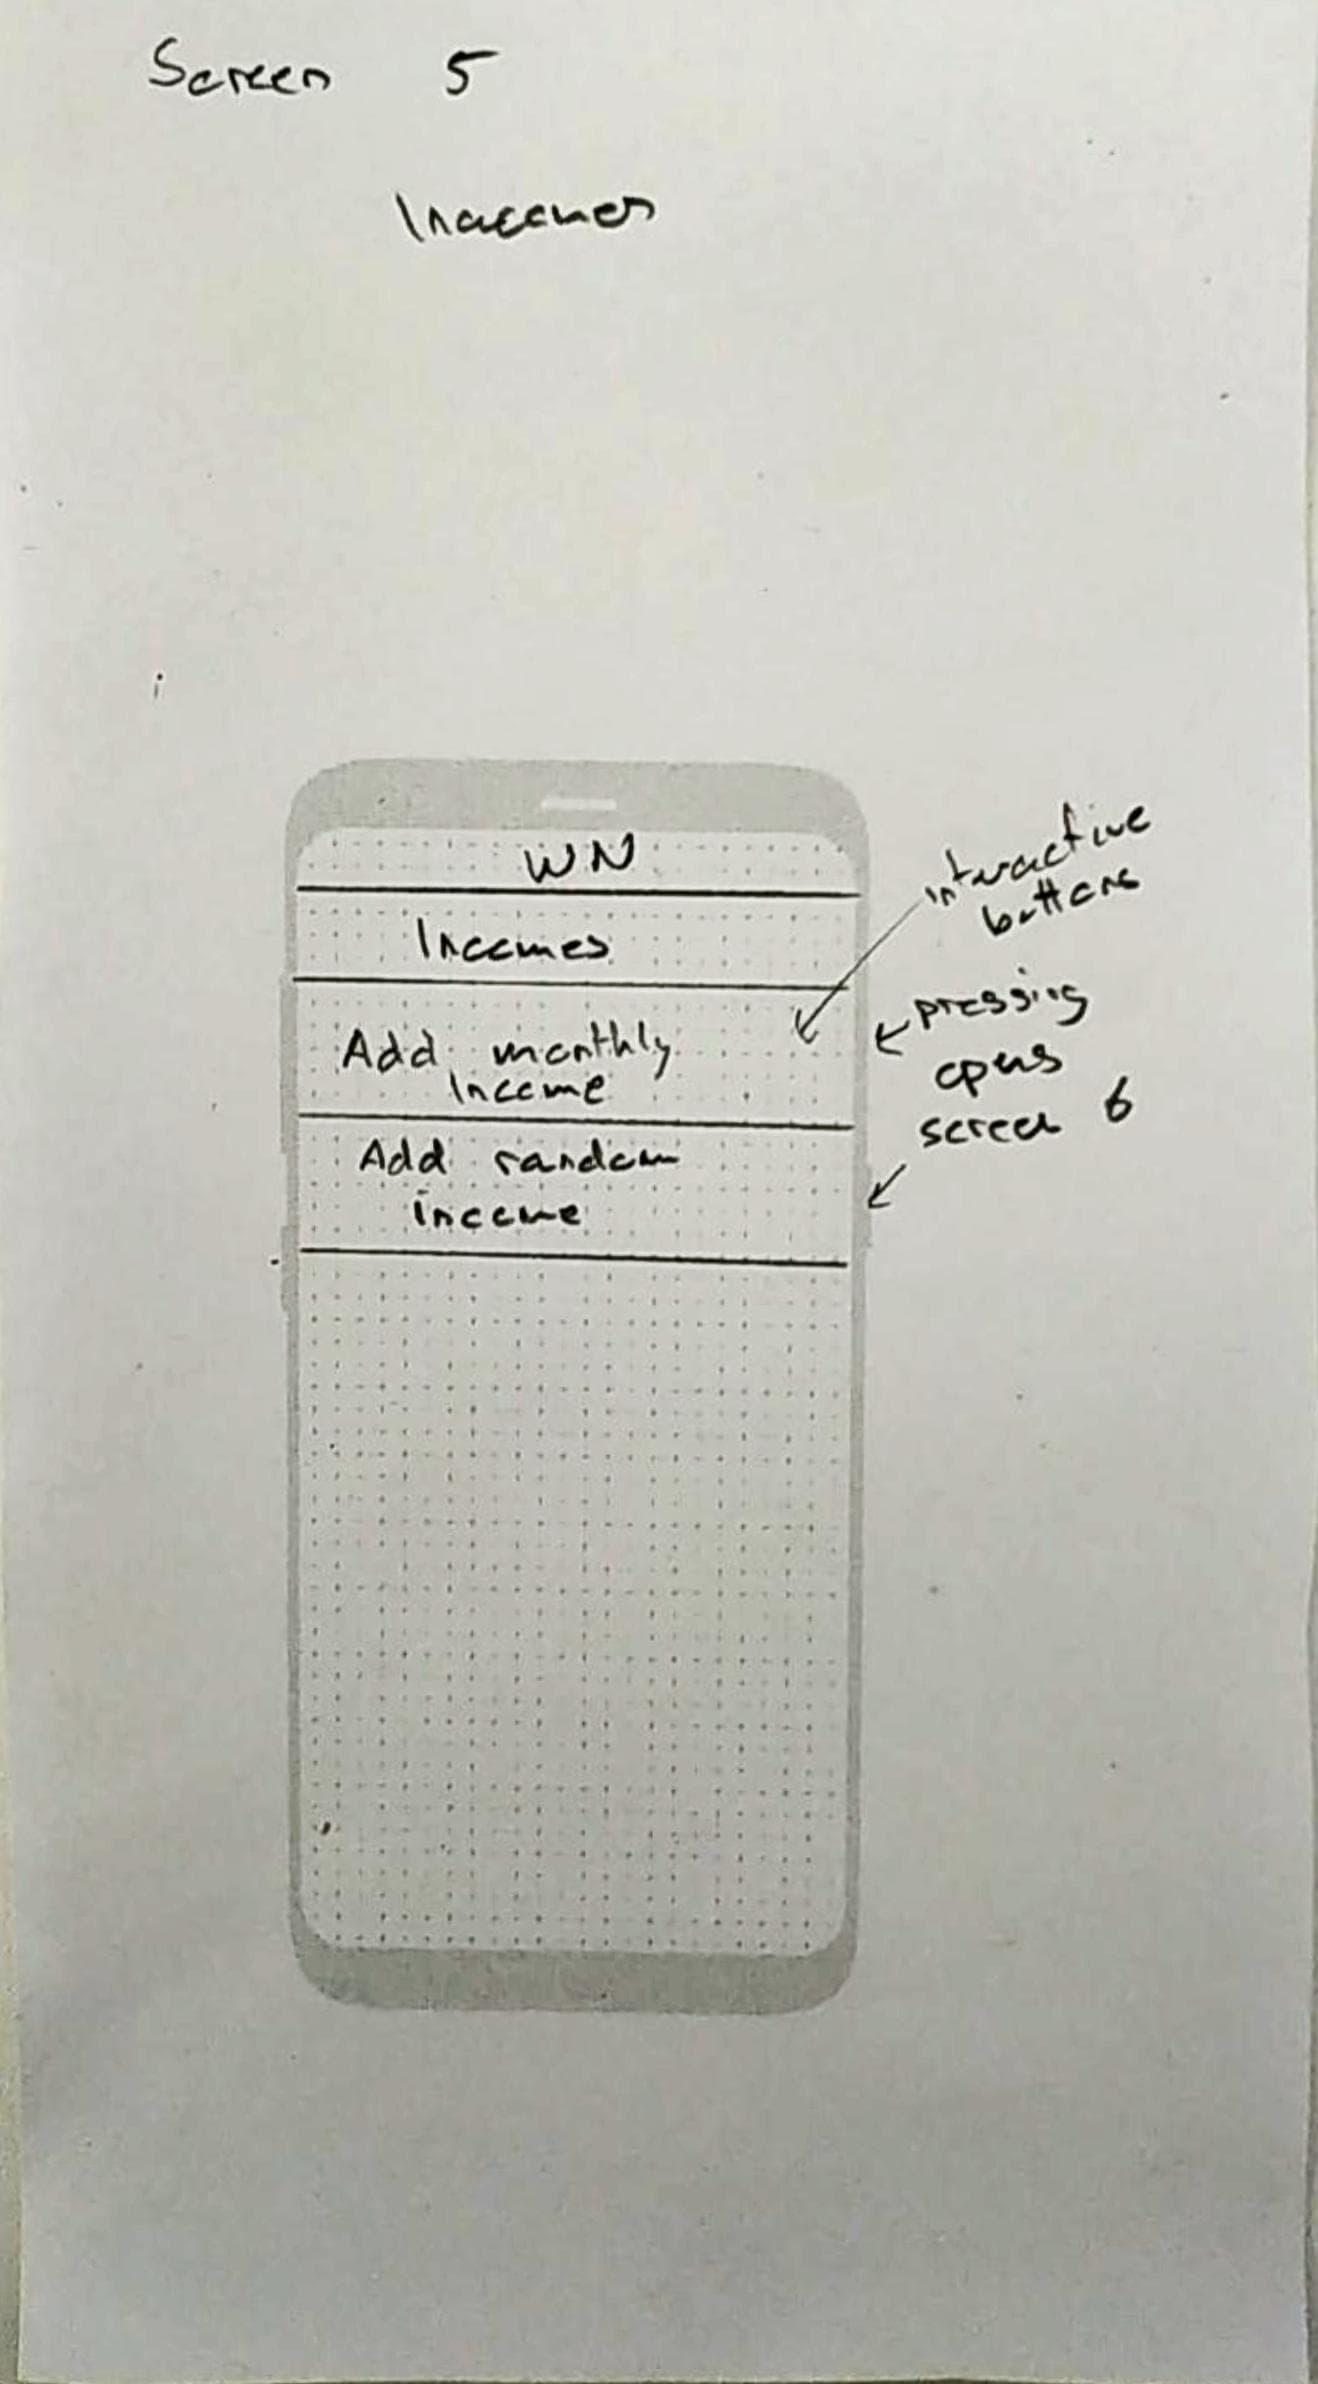 Screen 5
Incomes
WN
Incomes
Add monthly
Income
Add random
income
interactive
buttons
pressing
opens
screen 6